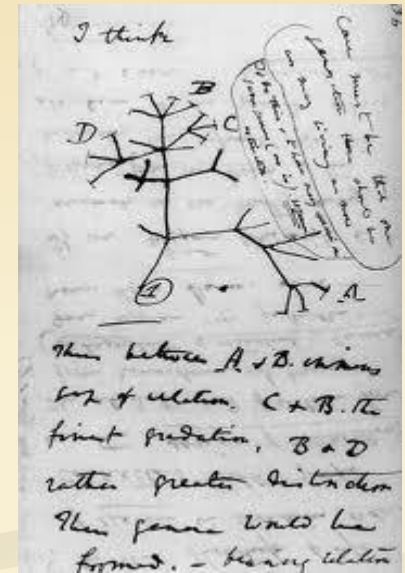 I think
36
Case must be that one
generation then should be
as many living as now
To do this & to have many species in
same genus (as is) requires
extinction
B
D
C
1
A
Thus between A & B. immense
gap of relation. C & B. the
finest gradation, B & D
rather greater distinction
Thus genera would be
formed. — bearing relation